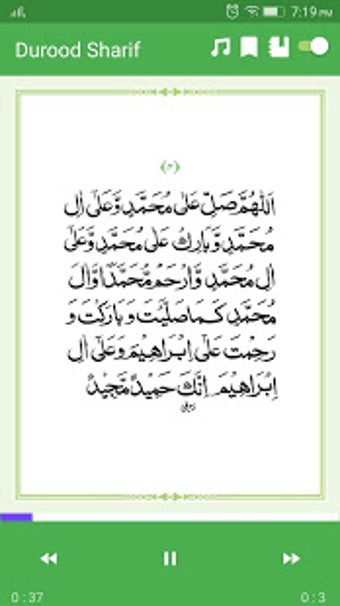 7:19 PM
Durood Sharif
(٣)
اَللّٰهُمَّ صَلِّ عَلٰى مُحَمَّدٍ وَّعَلٰٓى اٰلِ
مُحَمَّدٍ وَّبَارِكْ عَلٰى مُحَمَّدٍ وَّعَلٰٓى
اٰلِ مُحَمَّدٍ وَّارْحَمْ مُحَمَّدًا وَّاٰلَ
مُحَمَّدٍ كَمَا صَلَّيْتَ وَ بَارَكْتَ وَ
رَحِمْتَ عَلٰٓى اِبْرَاهِيْمَ وَعَلٰٓى اٰلِ
اِبْرَاهِيْمَ اِنَّكَ حَمِيْدٌ مَّجِيْدٌ
0:37
0:3